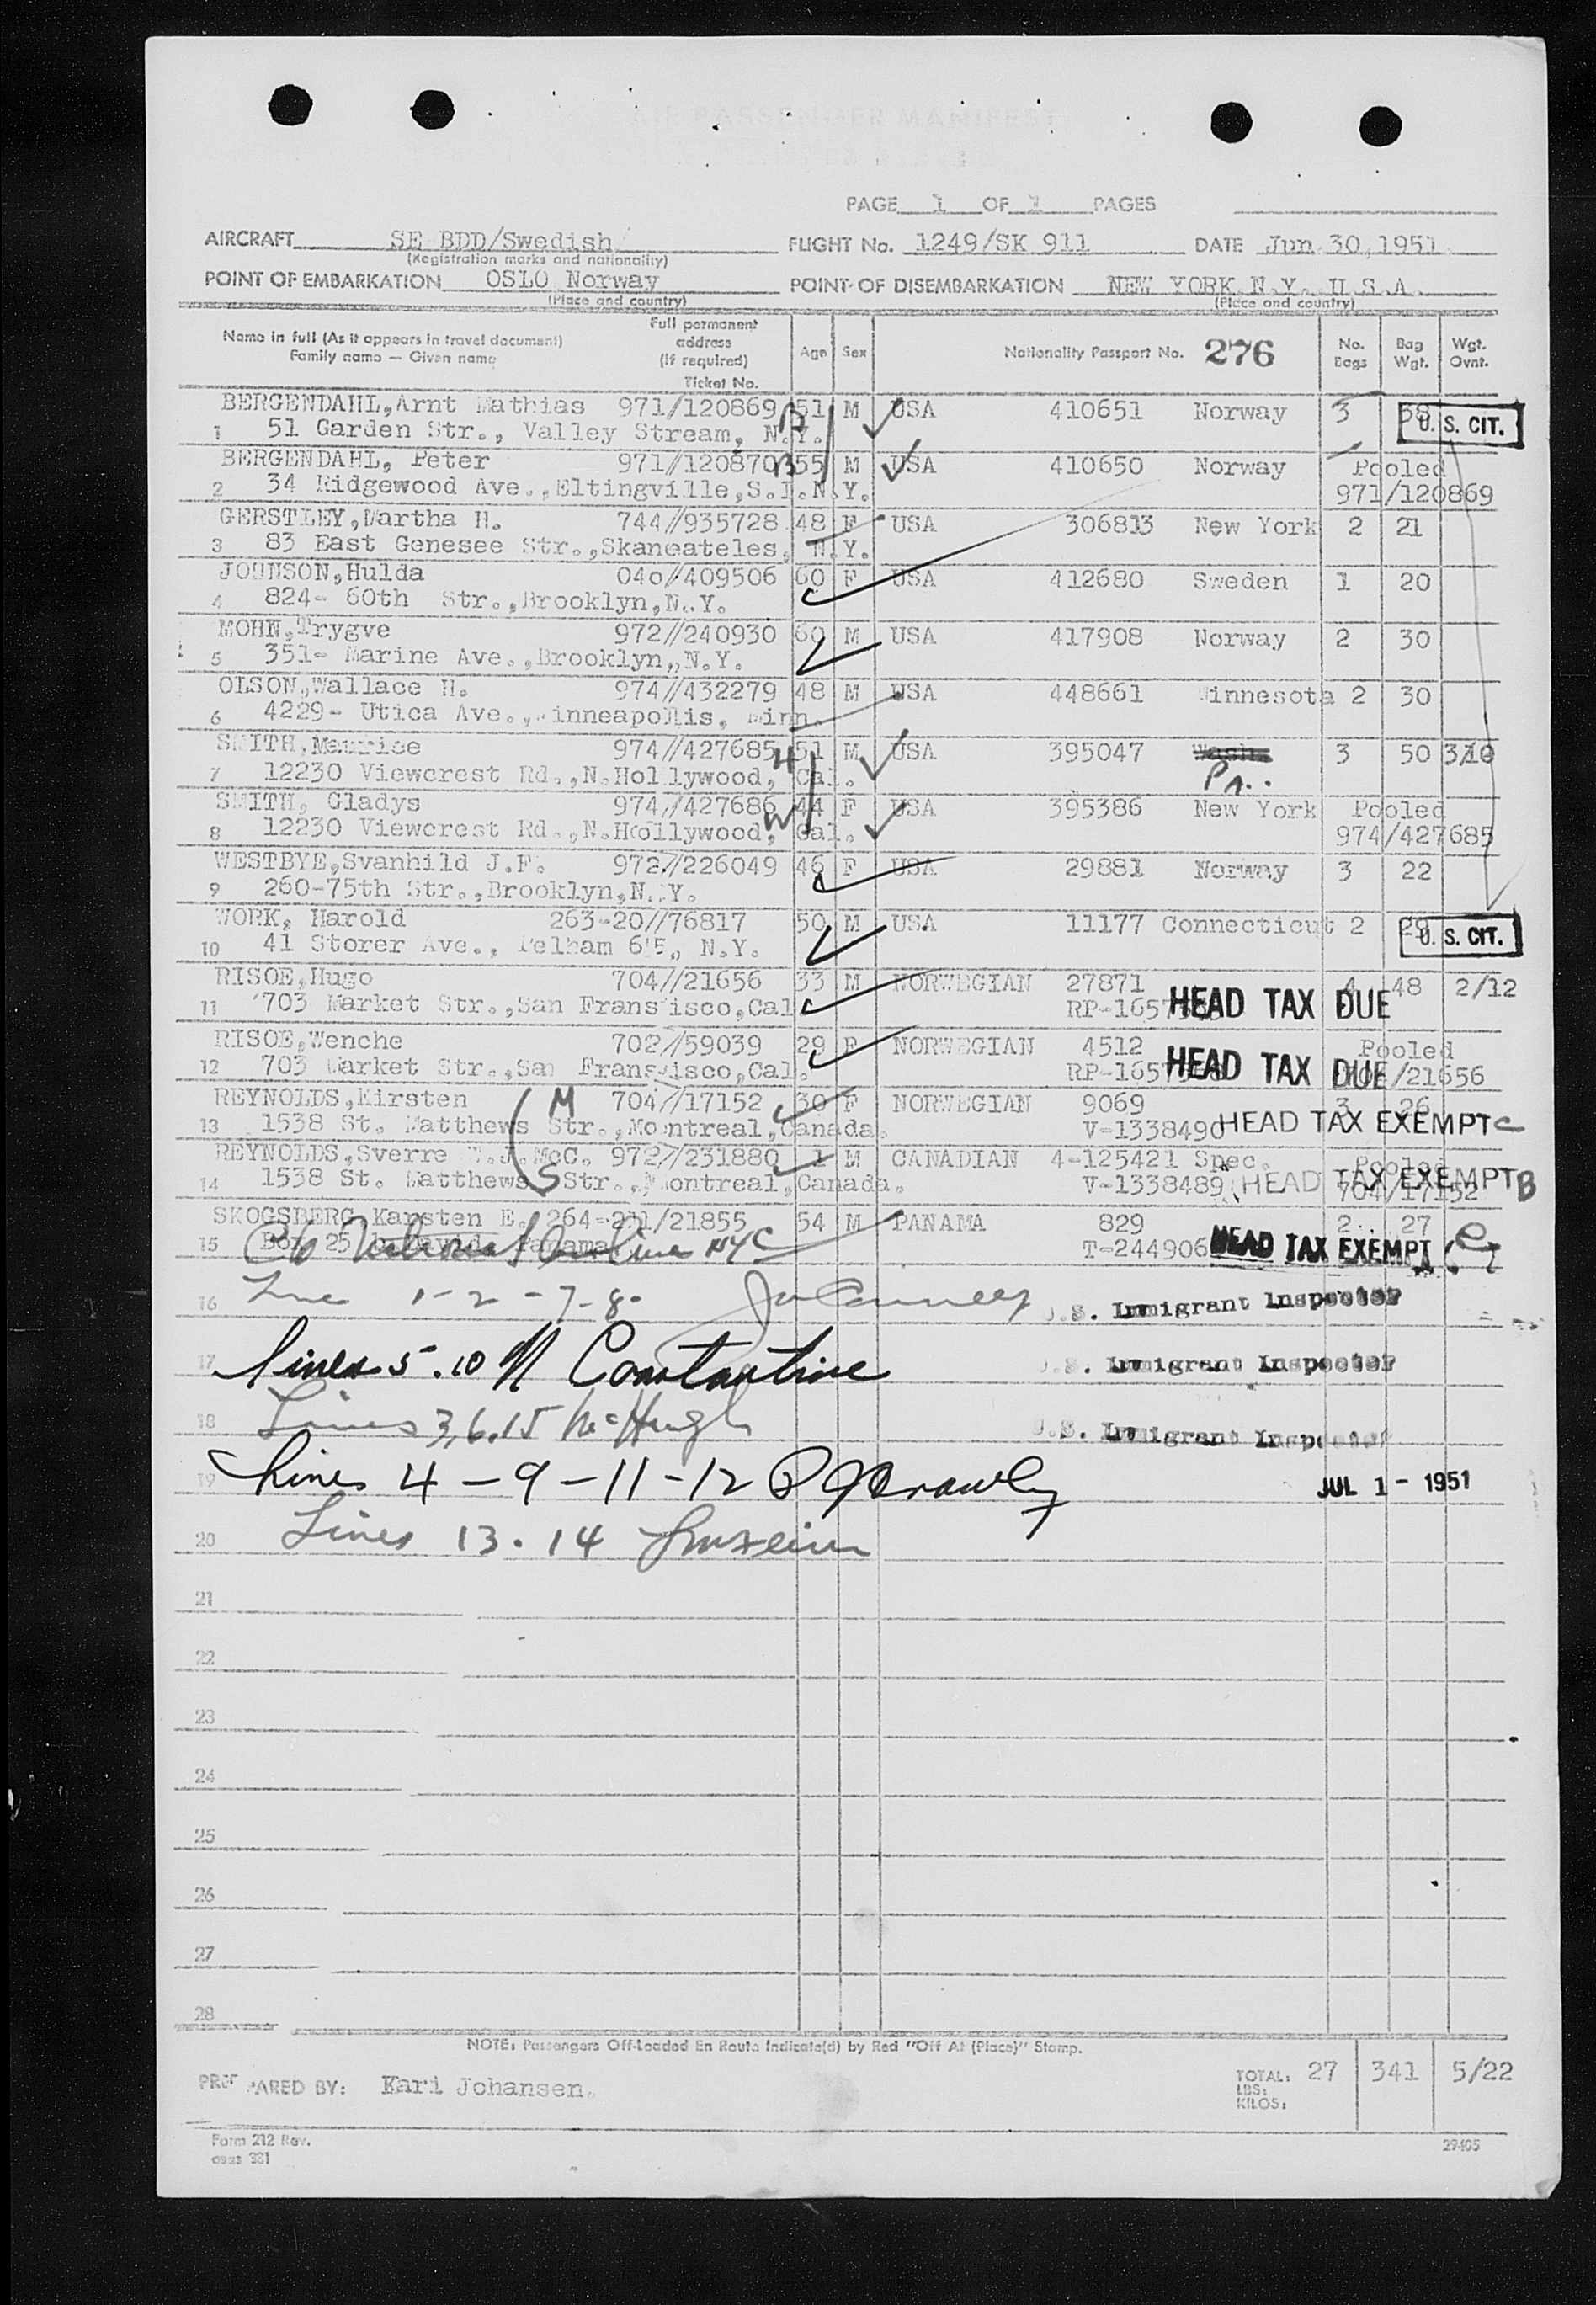 AIR PASSENGER MANIFEST
PAGE 1 OF 1 PAGES
AIRCRAFT SE BDD/Swedish FLIGHT No. 1249/SK 911 DATE Jun 30,1951
(Registration marks and nationality)
POINT OF EMBARKATION OSLO Norway POINT OF DISEMBARKATION NEW YORK N.Y. U.S.A.
(Place and country) (Place and country)
Name in full (As it appears in travel document) Family name — Given name Full permanent address (If required) Ticket No. Age Sex Nationality Passport No. 276 No. Bags Bag Wgt. Wgt. Ovnt.
BERGENDAHL,Arnt Mathias 971/120869 51 M USA 410651 Norway 3 38 U. S. CIT.
1 51 Garden Str., Valley Stream, N.Y.
BERGENDAHL, Peter 971/120870 B 55 M USA 410650 Norway Pooled
2 34 Ridgewood Ave.,Eltingville,S.I.N.Y. 971/120869
GERSTLEY,Martha H. 744//935728 48 F USA 306813 New York 2 21
3 83 East Genesee Str.,Skaneateles, N.Y.
JOHNSON,Hulda 040//409506 60 F USA 412680 Sweden 1 20
4 824- 60th Str.,Brooklyn,N.Y.
MOHN,Trygve 972//240930 60 M USA 417908 Norway 2 30
5 351- Marine Ave.,Brooklyn,,N.Y.
OLSON,Wallace H. 974//432279 48 M USA 448661 Minnesota 2 30
6 4229- Utica Ave.,Minneapolis, Minn.
SMITH,Maurice 974//427685 H 51 M USA 395047 Wash. 3 50 3/10
7 12230 Viewcrest Rd.,N.Hollywood, Cal. Pa.
SMITH, Gladys 974//427686 W 44 F USA 395386 New York Pooled
8 12230 Viewcrest Rd.,N.Hollywood, Cal. 974/427685
WESTBYE,Svanhild J.F. 972//226049 46 F USA 29881 Norway 3 22
9 260-75th Str.,Brooklyn,N.Y.
WORK, Harold 263-20//76817 50 M USA 11177 Connecticut 2 29 U. S. CIT.
10 41 Storer Ave., Pelham 65, N.Y.
RISOE,Hugo 704//21656 33 M NORWEGIAN 27871 4 48 2/12
11 703 Market Str.,San Fransisco,Cal. RP-1657 HEAD TAX DUE
RISOE,Wenche 702//59039 29 F NORWEGIAN 4512 Pooled
12 703 Market Str.,San Fransisco,Cal. RP-1657 HEAD TAX DUE /21656
REYNOLDS,Kirsten M 704//17152 30 F NORWEGIAN 9069 3 26
13 1538 St. Matthews Str.,Montreal,Canada. V-1338490 HEAD TAX EXEMPT C
REYNOLDS,Sverre J.McC. 972//231880 1 M CANADIAN 4-125421 Spec. Pooled
14 1538 St. Matthews S Str.,Montreal,Canada. V-1338489 HEAD TAX EXEMPT B 704/17152
SKOGSBERG Karsten E. 264-221/21855 54 M PANAMA 829 2 27
15 Box 25 Panama C/o National NYC T-244906 HEAD TAX EXEMPT
16 Line 1-2-7-8- U.S. Immigrant Inspector
17 lines 5.10 N Constantine U.S. Immigrant Inspector
18 Lines 3,6,15 McHugh U.S. Immigrant Inspector
19 Lines 4-9-11-12 P J Crawley JUL 1 - 1951
20 Lines 13.14
21
22
23
24
25
26
27
28
NOTE: Passengers Off-Loaded En Route Indicate(d) by Red "Off At (Place)" Stamp.
PREPARED BY: Kari Johansen. TOTAL: 27 341 5/22
LBS:
KILOS:
Form 212 Rev. 29405